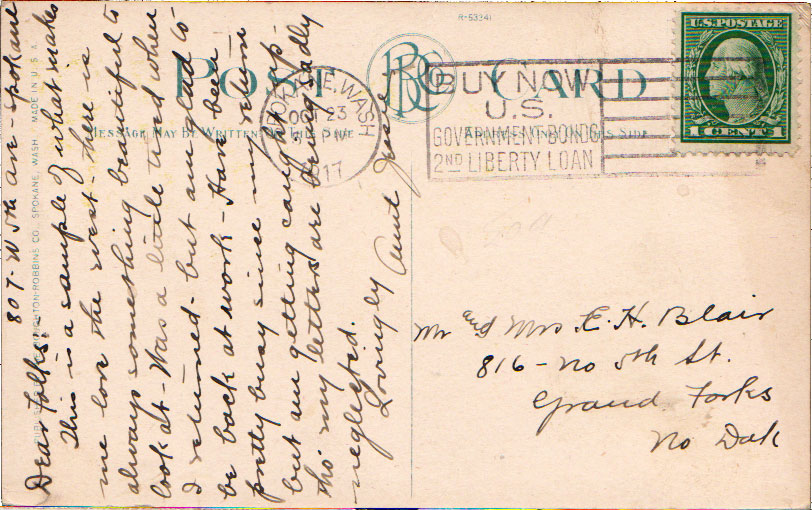 R-53341
POST CARD
MESSAGE MAY BE WRITTEN ON THIS SIDE
SPOKANE, WASH
OCT 23
1917
BUY NOW
U.S.
GOVERNMENT BONDS
2ND LIBERTY LOAN
U.S. POSTAGE
1 CENT 1
ROBBINS CO., SPOKANE, WASH. MADE IN U.S.A.
807 - W 5th ave - Spokane
Dear folks:
This is a sample of what makes
me love the west - there is
always something beautiful to
look at - Was a little tired when
I returned - but am glad to
be back at work - Have been
pretty busy since my return
but am getting caught up -
tho' my letters are being sadly
neglected.
Lovingly Aunt
Mr and Mrs E. H. Blair
816 - no 5th St.
Grand Forks
No Dak